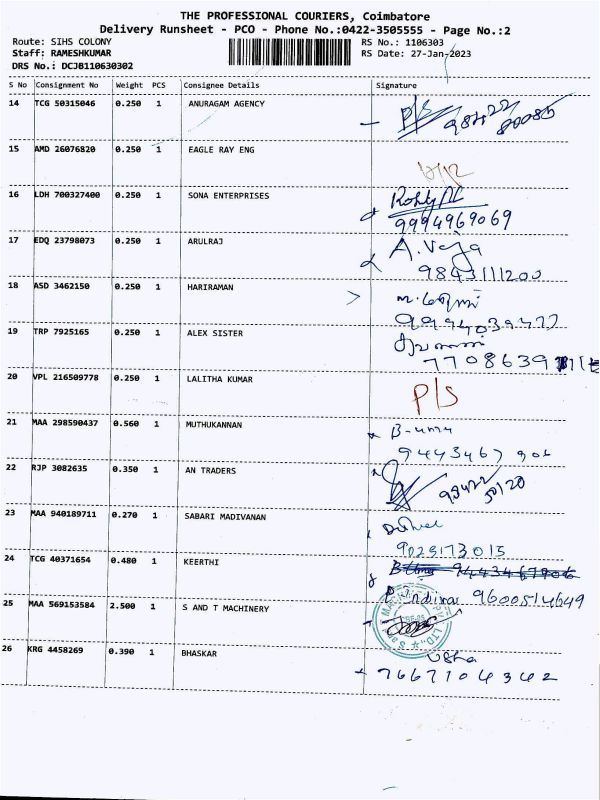 THE PROFESSIONAL COURIERS, Coimbatore
Delivery Runsheet - PCO - Phone No.:0422-3505555 - Page No.:2
Route: SIHS COLONY RS No.: 1106303
Staff: RAMESHKUMAR RS Date: 27-Jan-2023
DRS No.: DCJB110630302
S No Consignment No Weight PCS Consignee Details Signature
14 TCG 50315046 0.250 1 ANURAGAM AGENCY P/S
15 AMD 26076820 0.250 1 EAGLE RAY ENG
16 LDH 700327400 0.250 1 SONA ENTERPRISES
9994969069
17 EDQ 23798073 0.250 1 ARULRAJ A.
9843111200
18 ASD 3462150 0.250 1 HARIRAMAN
9994039477
19 TRP 7925165 0.250 1 ALEX SISTER
20 VPL 216509778 0.250 1 LALITHA KUMAR P/S
21 MAA 298590437 0.560 1 MUTHUKANNAN
22 RJP 3082635 0.350 1 AN TRADERS
23 MAA 940189711 0.270 1 SABARI MADIVANAN
9025173015
24 TCG 40371654 0.480 1 KEERTHI
9600514649
25 MAA 569153584 2.500 1 S AND T MACHINERY
26 KRG 4458269 0.390 1 BHASKAR Usha
7667104342